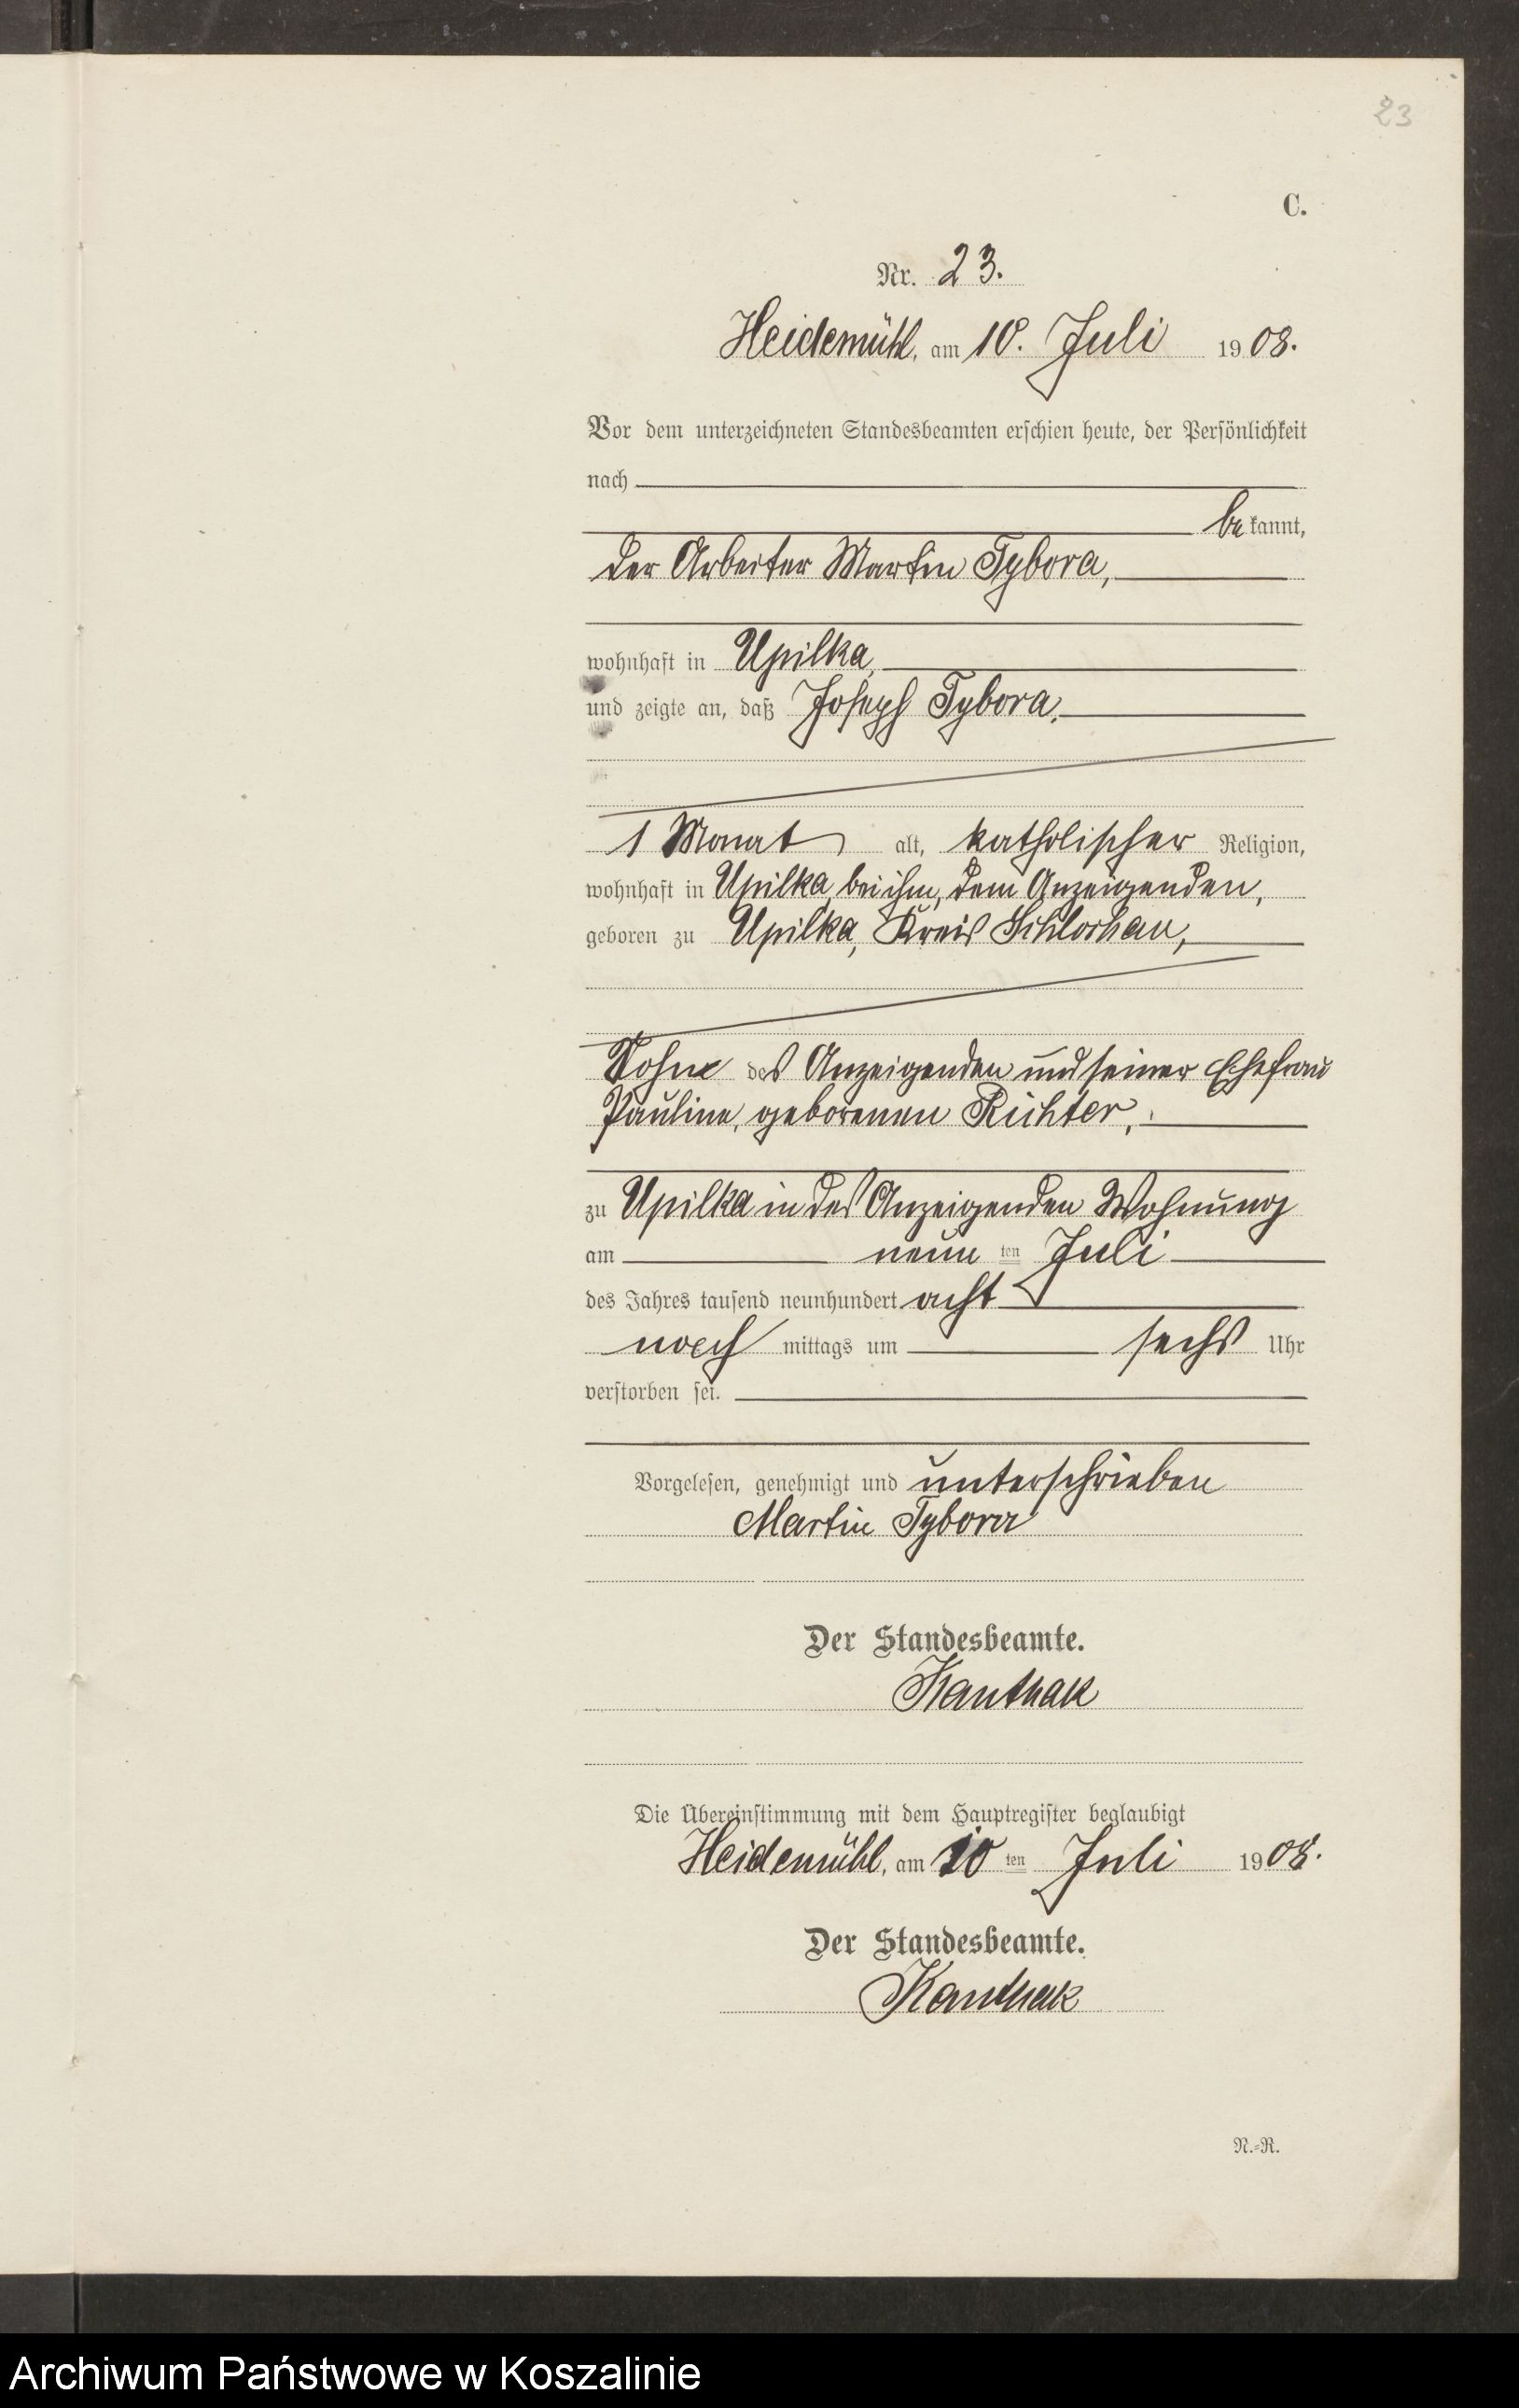 23
C.
Nr. 23.
Heidemühl, am 10. Juli 1908.
Vor dem unterzeichneten Standesbeamten erschien heute, der Persönlichkeit
nach
bekannt,
der Arbeiter Martin Tybora,
wohnhaft in Upilka,
und zeigte an, daß Joseph Tybora,
1 Monat alt, katholischer Religion,
wohnhaft in Upilka, bei ihm, dem Anzeigenden,
geboren zu Upilka, Kreis Schlochau,
Sohn des Anzeigenden und seiner Ehefrau
Pauline, geborenen Richter,
zu Upilka in des Anzeigenden Wohnung
am neun ten Juli
des Jahres tausend neunhundert acht
nach mittags um sechs Uhr
verstorben sei.
Vorgelesen, genehmigt und unterschrieben
Martin Tybora
Der Standesbeamte.
Kanthak
Die Übereinstimmung mit dem Hauptregister beglaubigt
Heidemühl, am 10 ten Juli 1908.
Der Standesbeamte.
Kanthak
N.=R.
Archiwum Państwowe w Koszalinie